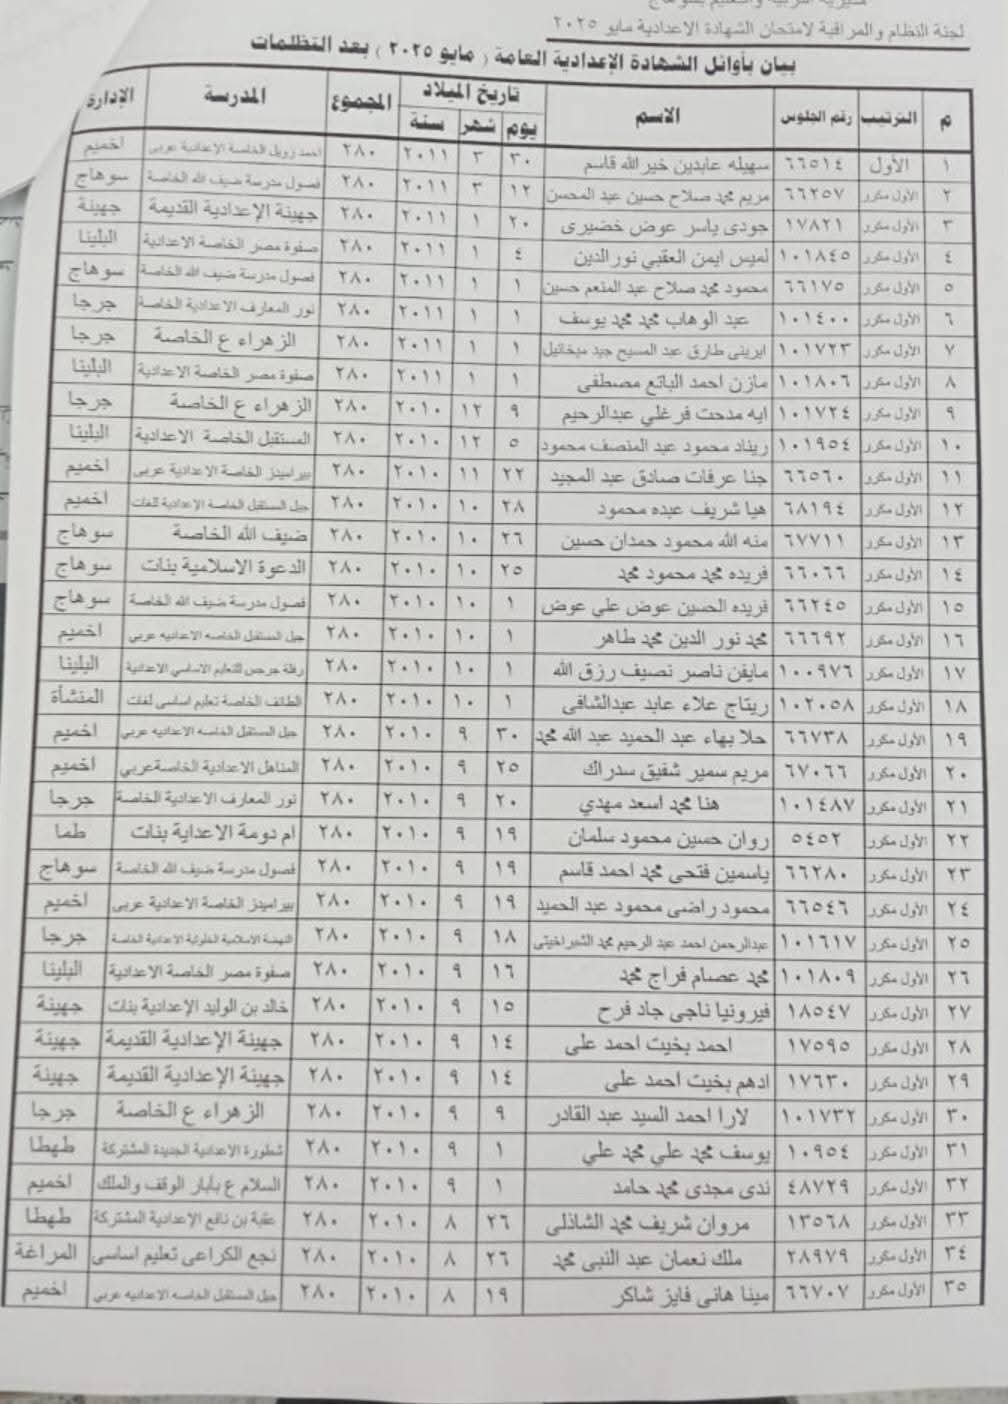 مديرية التربية والتعليم بسوهاج
لجنة النظام والمراقبة لامتحان الشهادة الإعدادية مايو ٢٠٢٥
بيان بأوائل الشهادة الإعدادية العامة ( مايو ٢٠٢٥ ) بعد التظلمات
م الترتيب رقم الجلوس الاسم تاريخ الميلاد المجموع المدرسة الإدارة
يوم شهر سنة
١ الأول ٦٦٥١٤ سهيله عابدين خير الله قاسم ٣٠ ٣ ٢٠١١ ٢٨٠ احمد زويل الخاصة الاعدادية عربى اخميم
٢ الأول مكرر ٦٦٢٥٧ مريم محمد صلاح حسين عبد المحسن ١٢ ٣ ٢٠١١ ٢٨٠ فصول مدرسة ضيف الله الخاصة سوهاج
٣ الأول مكرر ١٧٨٢١ جودى ياسر عوض خضيرى ٢٠ ١ ٢٠١١ ٢٨٠ جهينة الإعدادية القديمة جهينة
٤ الأول مكرر ١٠١٨٤٥ لميس ايمن العقبي نور الدين ٤ ١ ٢٠١١ ٢٨٠ صفوة مصر الخاصة الاعدادية البلينا
٥ الأول مكرر ٦٦١٧٥ محمود محمد صلاح عبد المنعم حسين ١ ١ ٢٠١١ ٢٨٠ فصول مدرسة ضيف الله الخاصة سوهاج
٦ الأول مكرر ١٠١٤٠٠ عبد الوهاب محمد محمد يوسف ١ ١ ٢٠١١ ٢٨٠ نور المعارف الاعدادية الخاصة جرجا
٧ الأول مكرر ١٠١٧٢٣ ايرينى طارق عبد المسيح جيد ميخائيل ١ ١ ٢٠١١ ٢٨٠ الزهراء ع الخاصة جرجا
٨ الأول مكرر ١٠١٨٠٦ مازن احمد الباتع مصطفى ١ ١ ٢٠١١ ٢٨٠ صفوة مصر الخاصة الاعدادية البلينا
٩ الأول مكرر ١٠١٧٢٤ ايه مدحت فرغلي عبدالرحيم ٩ ١٢ ٢٠١٠ ٢٨٠ الزهراء ع الخاصة جرجا
١٠ الأول مكرر ١٠١٩٥٤ ريناد محمود عبد المنصف محمود ٥ ١٢ ٢٠١٠ ٢٨٠ المستقبل الخاصة الاعدادية البلينا
١١ الأول مكرر ٦٦٥٦٠ جنا عرفات صادق عبد المجيد ٢٢ ١١ ٢٠١٠ ٢٨٠ بيراميدز الخاصة الاعدادية عربى اخميم
١٢ الأول مكرر ٦٨١٩٤ هيا شريف عبده محمود ٢٨ ١٠ ٢٠١٠ ٢٨٠ جيل المستقبل الخاصة الاعدادية للغات اخميم
١٣ الأول مكرر ٦٧٧١١ منه الله محمود حمدان حسين ٢٦ ١٠ ٢٠١٠ ٢٨٠ ضيف الله الخاصة سوهاج
١٤ الأول مكرر ٦٦٠٦٦ فريده محمد محمود محمد ٢٥ ١٠ ٢٠١٠ ٢٨٠ الدعوة الاسلامية بنات سوهاج
١٥ الأول مكرر ٦٦٢٤٥ فريده الحسين عوض علي عوض ١ ١٠ ٢٠١٠ ٢٨٠ فصول مدرسة ضيف الله الخاصة سوهاج
١٦ الأول مكرر ٦٦٦٩٢ محمد نور الدين محمد طاهر ١ ١٠ ٢٠١٠ ٢٨٠ جيل المستقبل الخاصه الاعداديه عربي اخميم
١٧ الأول مكرر ١٠٠٩٧٦ مايفن ناصر نصيف رزق الله ١ ١٠ ٢٠١٠ ٢٨٠ رفلة جرجس للتعليم الاساسي الاعدادية البلينا
١٨ الأول مكرر ١٠٢٠٥٨ ريتاج علاء عابد عبدالشافى ١ ١٠ ٢٠١٠ ٢٨٠ الطائف الخاصة تعليم اساسى لغات المنشأة
١٩ الأول مكرر ٦٦٧٣٨ حلا بهاء عبد الحميد عبد الله محمد ٣٠ ٩ ٢٠١٠ ٢٨٠ جيل المستقبل الخاصه الاعداديه عربي اخميم
٢٠ الأول مكرر ٦٧٠٦٦ مريم سمير شفيق سدراك ٢٥ ٩ ٢٠١٠ ٢٨٠ المناهل الاعدادية الخاصة عربي اخميم
٢١ الأول مكرر ١٠١٤٨٧ هنا محمد اسعد مهدي ٢٠ ٩ ٢٠١٠ ٢٨٠ نور المعارف الاعدادية الخاصة جرجا
٢٢ الأول مكرر ٥٤٥٢ روان حسين محمود سلمان ١٩ ٩ ٢٠١٠ ٢٨٠ ام دومة الاعداية بنات طما
٢٣ الأول مكرر ٦٦٢٨٠ ياسمين فتحى محمد احمد قاسم ١٩ ٩ ٢٠١٠ ٢٨٠ فصول مدرسة ضيف الله الخاصة سوهاج
٢٤ الأول مكرر ٦٦٥٤٦ محمود راضى محمود عبد الحميد ١٩ ٩ ٢٠١٠ ٢٨٠ بيراميدز الخاصة الاعدادية عربى اخميم
٢٥ الأول مكرر ١٠١٦١٧ عبدالرحمن احمد عبد الرحيم محمد الشبراخيتى ١٨ ٩ ٢٠١٠ ٢٨٠ النهضة الاسلامية الخلوتية الاعدادية الخاصة جرجا
٢٦ الأول مكرر ١٠١٨٠٩ محمد عصام فراج محمد ١٦ ٩ ٢٠١٠ ٢٨٠ صفوة مصر الخاصة الاعدادية البلينا
٢٧ الأول مكرر ١٨٥٤٧ فيرونيا ناجى جاد فرح ١٥ ٩ ٢٠١٠ ٢٨٠ خالد بن الوليد الإعدادية بنات جهينة
٢٨ الأول مكرر ١٧٥٩٥ احمد بخيت احمد على ١٤ ٩ ٢٠١٠ ٢٨٠ جهينة الإعدادية القديمة جهينة
٢٩ الأول مكرر ١٧٦٣٠ ادهم بخيت احمد على ١٤ ٩ ٢٠١٠ ٢٨٠ جهينة الإعدادية القديمة جهينة
٣٠ الأول مكرر ١٠١٧٣٢ لارا احمد السيد عبد القادر ٩ ٩ ٢٠١٠ ٢٨٠ الزهراء ع الخاصة جرجا
٣١ الأول مكرر ١٠٩٥٤ يوسف محمد علي محمد علي ١ ٩ ٢٠١٠ ٢٨٠ شطورة الاعدادية الجديدة المشتركة طهطا
٣٢ الأول مكرر ٤٨٧٢٩ ندى مجدى محمد حامد ١ ٩ ٢٠١٠ ٢٨٠ السلام ع بآبار الوقف والملك اخميم
٣٣ الأول مكرر ١٣٥٦٨ مروان شريف محمد الشاذلى ٢٦ ٨ ٢٠١٠ ٢٨٠ عقبة بن نافع الإعدادية المشتركة طهطا
٣٤ الأول مكرر ٢٨٩٧٩ ملك نعمان عبد النبى محمد ٢٦ ٨ ٢٠١٠ ٢٨٠ نجع الكراعى تعليم اساسى المراغة
٣٥ الأول مكرر ٦٦٧٠٧ مينا هانى فايز شاكر ١٩ ٨ ٢٠١٠ ٢٨٠ جيل المستقبل الخاصه الاعداديه عربي اخميم